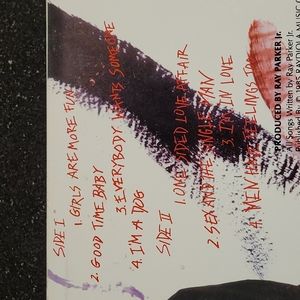 SIDE I
1. GIRLS ARE MORE FUN
2. GOOD TIME BABY
3. EVERYBODY WANTS SOMEONE
4. I'M A DOG
SIDE II
1. ONE SIDED LOVE AFFAIR
2. SEX AND THE SINGLE MAN
3. I'M IN LOVE
4. MEN HAVE FEELINGS TOO
PRODUCED BY RAY PARKER Jr.
All Songs Written by Ray Parker Jr.